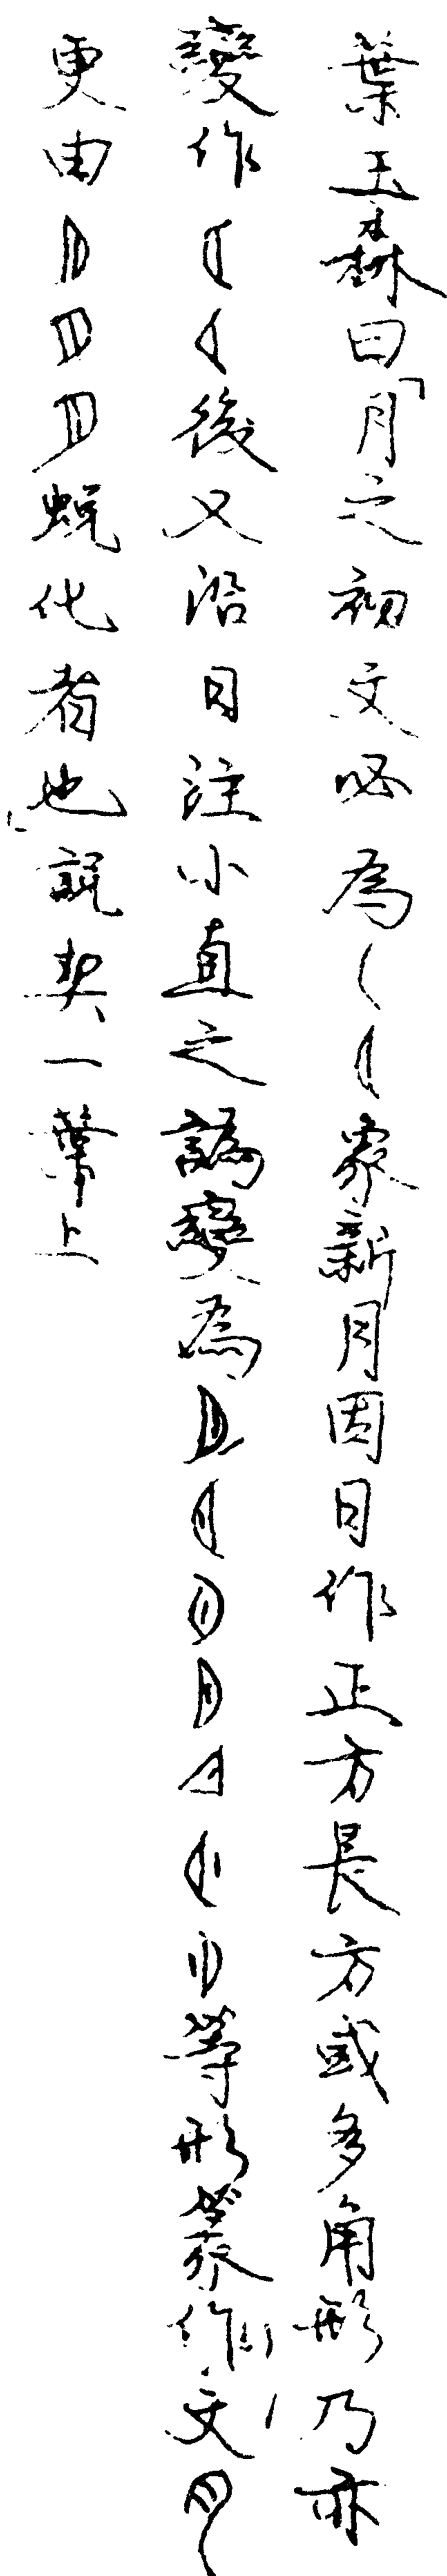 葉玉森曰「月之初文必為象新月因日作正方長方或多角形乃亦
變作後又沿日注小直之譌變為等形篆作文
更由蛻化者也」說契一葉上